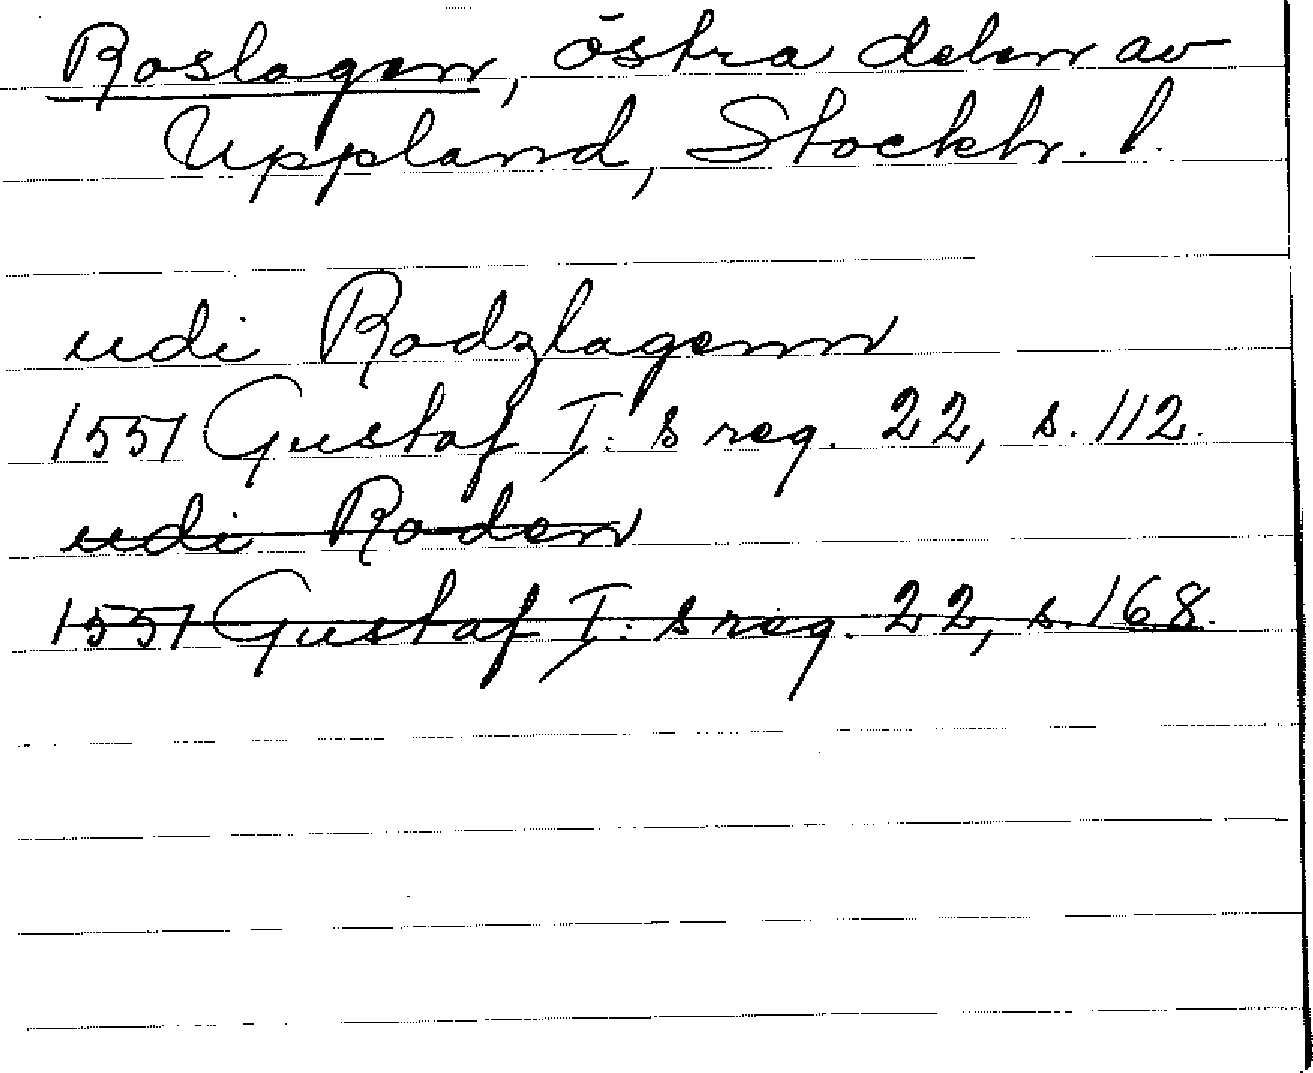 Roslagen, östra delen av
Uppland, Stockh. l.
udi Rodzlagenn
1551 Gustaf I:s reg. 22, s. 112.
udi Roden
1551 Gustaf I:s reg. 22, s. 168.